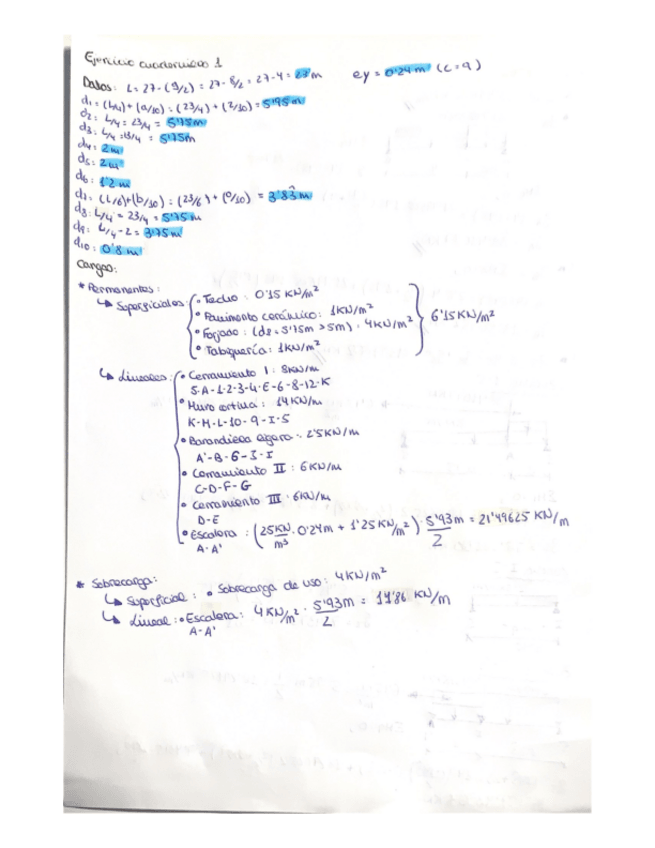 Ejercicio cuadernillo 1
Datos: L = 27 - (9/2) = 27 - 8/2 = 27 - 4 = 23 m ey = 0'24 m (c=9)
d1 = (L/4) + (a/10) = (23/4) + (2/10) = 5'95 m
d2 = L/4 = 23/4 = 5'75m
d3 = L/4 = 23/4 = 5'75m
d4 = 2 m
d5 = 2 m
d6 = 1'2 m
d7 = (L/6)+(b/10) = (23/6) + (0/10) = 3'83 m
d8 = L/4 = 23/4 = 5'75 m
d9 = L/4 - 2 = 3'75 m
d10 = 0'8 m
Cargas:
* Permanentes:
↳ Superficiales: • Techo: 0'15 KN/m²
• Pavimento cerámico: 1KN/m²
• Forjado: (d8 = 5'75m > 5m) : 4KN/m² 6'15 KN/m²
• Tabiquería: 1KN/m²
↳ Lineales: • Cerramiento I: 8KN/m
5-A-1-2-3-4-E-6-8-12-K
• Muro cortina: 14KN/m
K-M-L-10-9-I-5
• Barandilla ligera: 2'5KN/m
A'-B-G-J-I
• Cerramiento II: 6KN/m
C-D-F-G
• Cerramiento III: 6KN/m
D-E
• Escalera: (25KN/m³ · 0'24m + 1'25 KN/m²) · 5'93m/2 = 21'49625 KN/m
A-A'
* Sobrecarga:
↳ Superficial: • Sobrecarga de uso: 4KN/m²
↳ Lineal: • Escalera: 4KN/m² · 5'93m/2 = 11'86 KN/m
A-A'